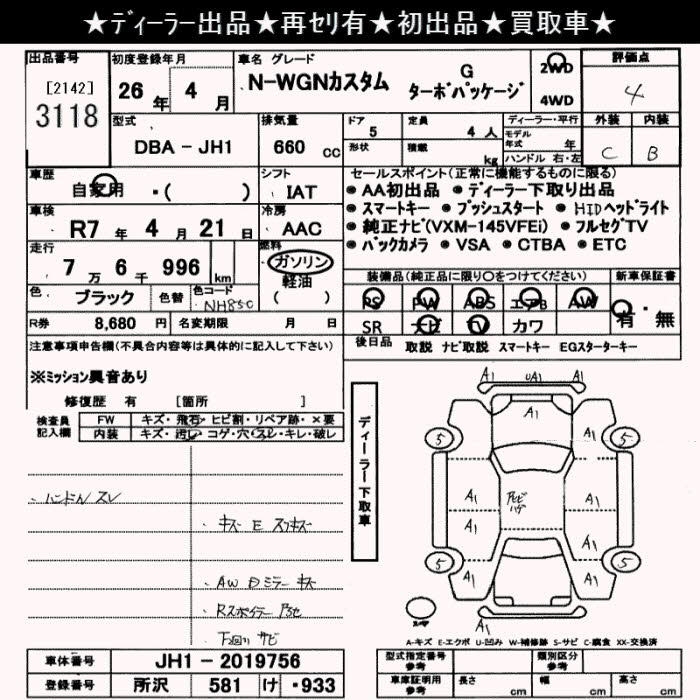 ★ディーラー出品★再セリ有★初出品★買取車★
出品番号 [2142] 3118
初度登録年月 26年 4月
車名 グレード N-WGNカスタム G ターボパッケージ
2WD 4WD
評価点 4
型式 DBA-JH1
排気量 660 cc
ドア 5 定員 4人
形状 積載 kg
ディーラー・平行
モデル年式 年
ハンドル 右・左
外装 C 内装 B
車歴 自家用 ・( )
シフト IAT
車検 R7年 4月 21日
冷房 AAC
走行 7万 6千 996 km
燃料 ガソリン 軽油 ( )
色 ブラック 色替 色コード NH850
R券 8,680 円 名変期限 月 日
セールスポイント(正常に機能するものに限る)
●AA初出品 ●ディーラー下取り出品
●スマートキー ●プッシュスタート ●HIDヘッドライト
●純正ナビ(VXM-145VFEi) ●フルセグTV
●バックカメラ ●VSA ●CTBA ●ETC
装備品(純正品に限り○をつけてください) 新車保証書
PS PW ABS エアB AW 有・無
SR ナビ TV カワ
後日品 取説 ナビ取説 スマートキー EGスターターキー
注意事項申告欄(不具合内容等は具体的に記入して下さい)
※ミッション異音あり
修復歴 有 [箇所 ]
検査員記入欄 FW キズ・飛石・ヒビ割・リペア跡・×要
内装 キズ・汚レ・コゲ・穴・スレ・キレ・破レ
・ハンドル スレ
・キズ E スリキズ
・AW Dミラー キズ
・Rスポイラー アセ
・下廻り サビ
ディーラー下取車
A1 UA1 A1
A1
5 A1 A1 5
A1 A1
A1 A1
5 A1 A1 5
A1
A-キズ E-エクボ U-凹み W-補修跡 S-サビ C-腐食 XX-交換済
車体番号 JH1-2019756
登録番号 所沢 581 け ・933
型式指定番号 参考 類別区分 参考
車庫証明用 参考 長さ cm 幅 cm 高さ cm